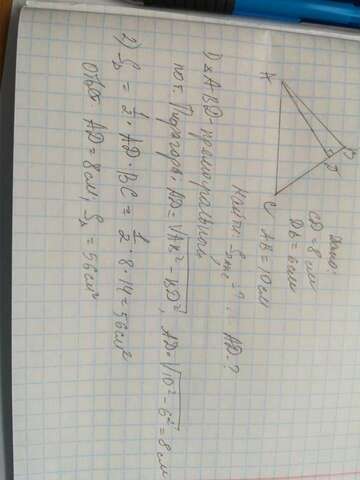 Дано:
CD=8см
DB=6см
AB=10см
A
B
D
C
Найти: S_ABC-? AD-?
1) △ABD-прямоугольный
по т. Пифагора: AD=√AB²-BD², AD=√10²-6²=8см
2) S△ = 1/2 · AD · BC = 1/2 8·14=56см²
Ответ: AD=8см; S△=56см²